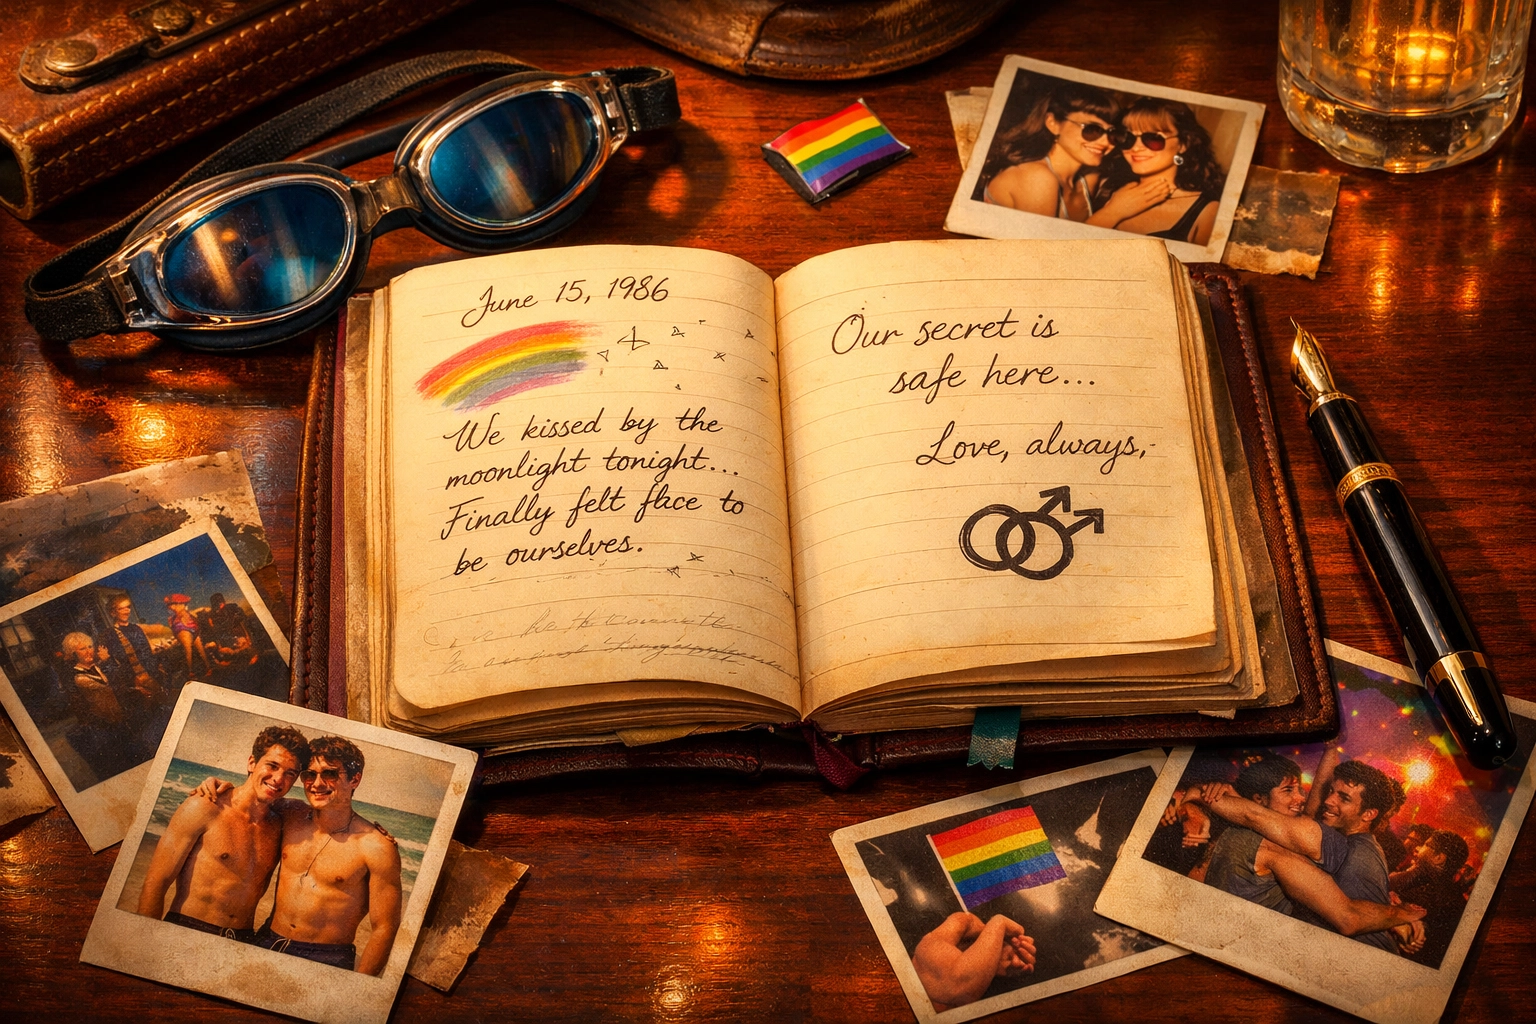 June 15, 1986
We kissed by the
moonlight tonight...
Finally felt to
be ourselves.
Our secret is
safe here...
Love, always,-